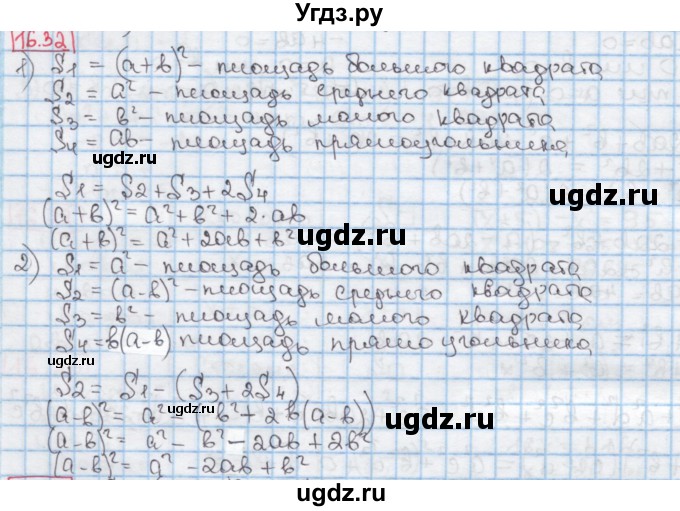 Угдз.ру
16.32
1) S1 = (a+b)² - площадь большого квадрата
S2 = a² - площадь среднего квадрата
S3 = b² - площадь малого квадрата
S4 = ab - площадь прямоугольника
ugdz.ru ugdz.ru
S1 = S2 + S3 + 2S4
(a+b)² = a² + b² + 2·ab
ugdz.ru
(a+b)² = a² + 2ab + b²
2) S1 = a² - площадь большого квадрата
S2 = (a-b)² - площадь среднего квадрата
S3 = b² - площадь малого квадрата
S4 = b(a-b) площадь прямоугольника
ugdz.ru ugdz.ru
S2 = S1 - (S3 + 2S4)
(a-b)² = a² - (b² + 2b(a-b))
(a-b)² = a² - b² - 2ab + 2b²
ugdz.ru
(a-b)² = a² - 2ab + b²
ugdz.ru